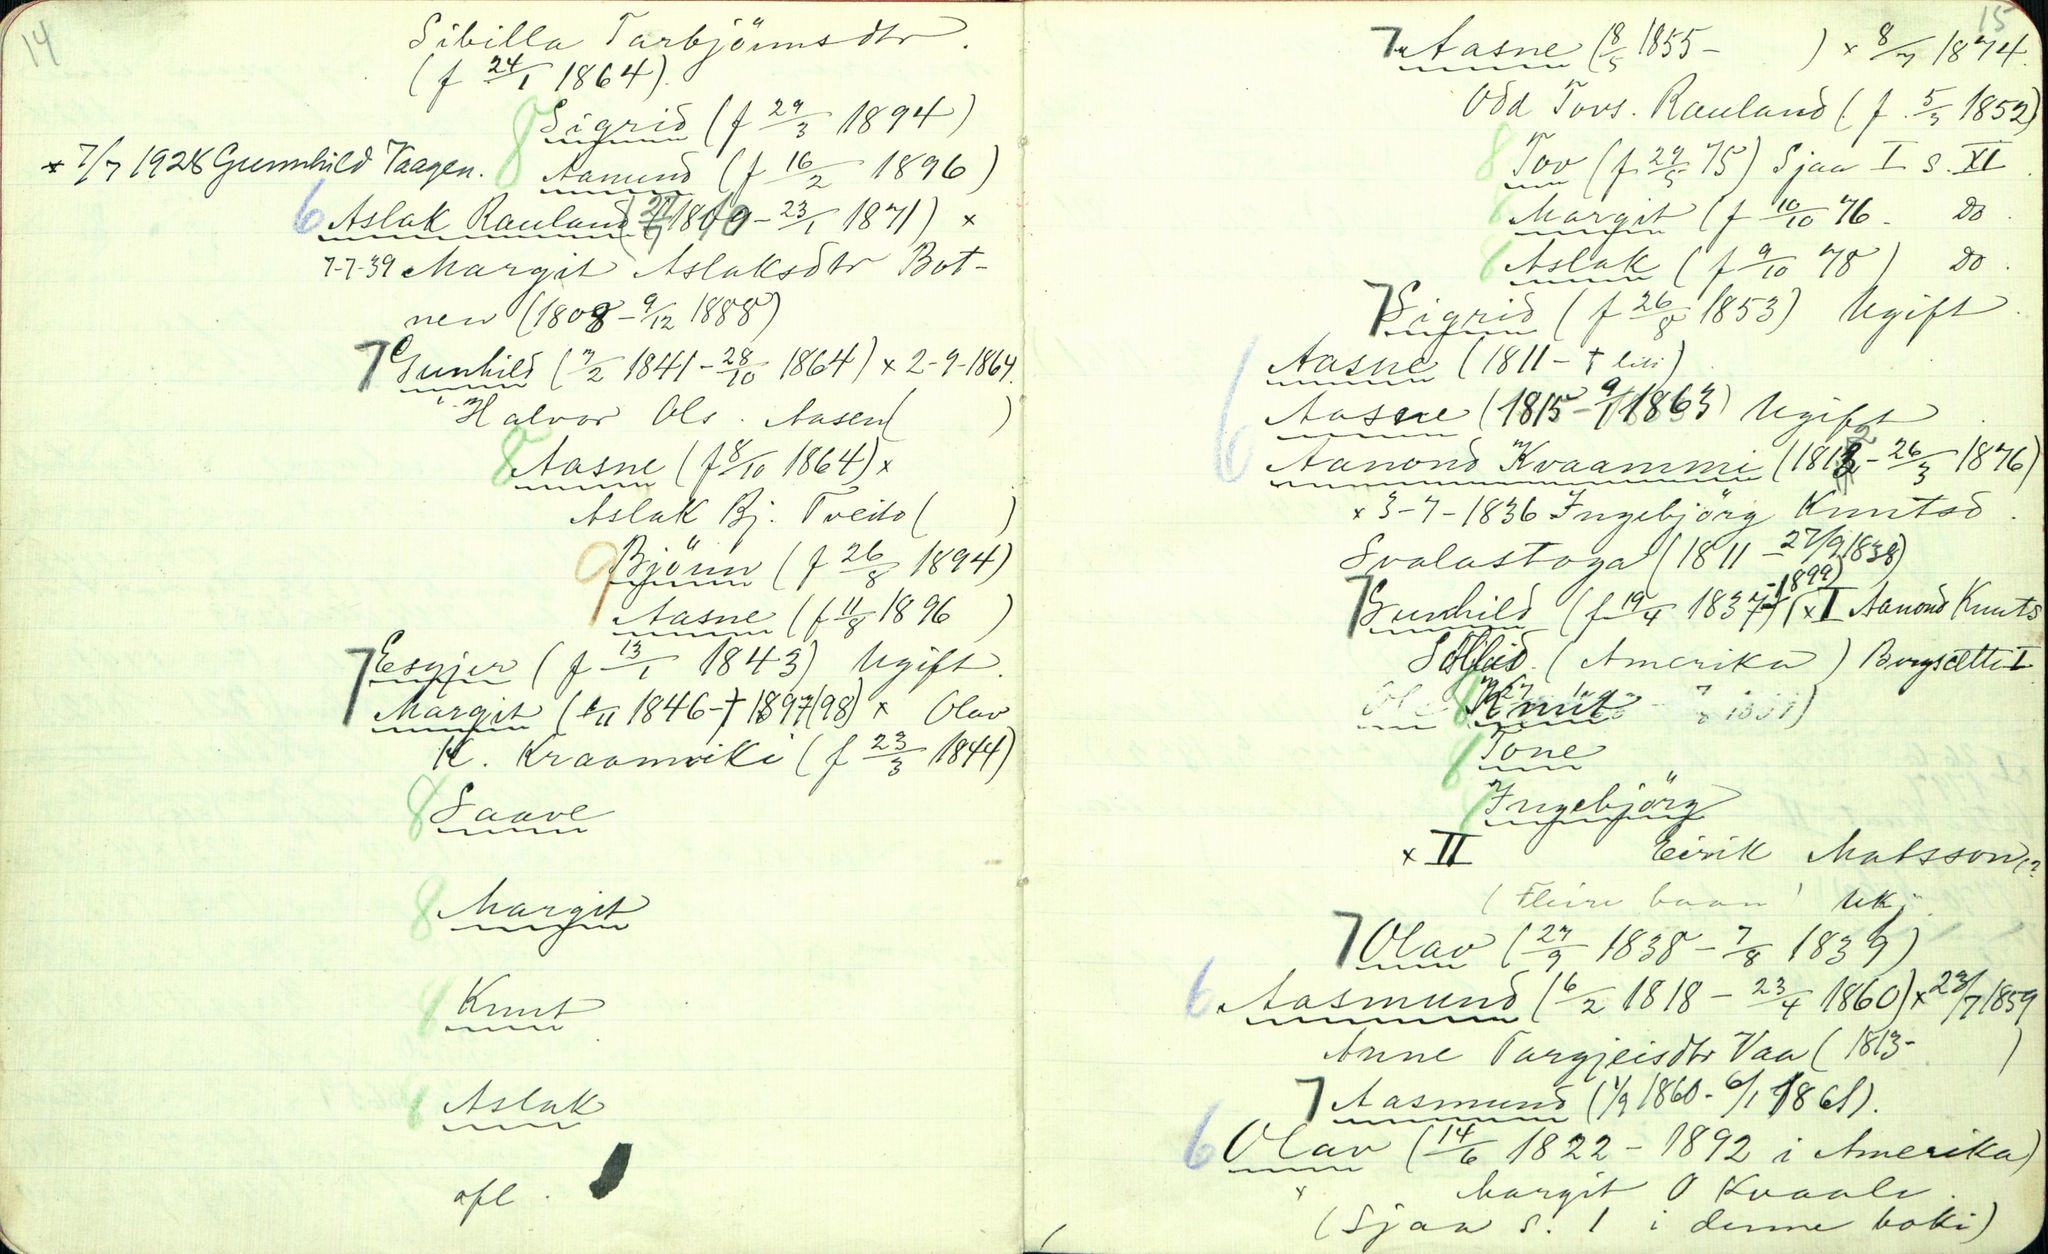 14
Sibilla Tarbjörnsdtr.
(f 24/1 1864).
8 Sigrid (f 29/3 1894)
x 7/7 1928 Gunnhild Vaagen. Aamund (f 16/2 1896)
6 Aslak Rauland (1809 - 23/1 1871) x
7-7-39 Margit Aslaksdtr Bot-
nen (1808 - 9/12 1888)
7 Gunhild (7/2 1841 - 28/10 1864) x 2-9-1864.
Halvor Ols. Aasen ( )
8 Aasne (f 8/10 1864) x
Aslak Bj. Tveito ( )
9 Björnn (f 26/8 1894)
Aasne (f 11/8 1896 )
7 Esgjer (f 13/1 1843) Ugift.
Margit (1/11 1846 - † 1897(98) x Olav
K. Kraamviki (f 23/3 1844)
8 Saave
8 Margit
8 Knut
8 Aslak
ofl.
15
7 Aasne (8/5 1855 - ) x 8/7 1874.
Odd Tovs. Rauland (f. 5/3 1852)
8 Tov (f 29/5 75) Sjaa I s. XI.
8 Margit (f 10/10 76. Do.
8 Aslak (f 9/10 78) Do.
7 Sigrid (f 26/8 1853) Ugift.
6 Aasne (1811 - † liti)
Aasne (1815 - 9/1 1863) Ugift
6 Aanond Kvaammi (1812 - 26/3 1876)
x 3-7-1836 Ingebjörg Knutsd.
Svalastoga (1811 - 27/9 1838)
7 Gunhild (f 19/4 1837 - 1899) (x I Aanond Knuts
(Amerika) Borgsætti I
8 Knut
8 Tone
8 Ingebjörg
x II Eirik Matsson (?
(Fleire baan) Ukj.
7 Olav (27/9 1838 - 7/8 1839)
6 Aasmund (6/2 1818 - 23/4 1860) x 23/7 1859
Anne Targjeisdtr Vaa (1813 - )
7 Aasmund (1/9 1860 - 6/1 1861).
6 Olav (14/6 1822 - 1892 i Amerika)
x Margit O Kvaale.
(Sjaa s. 1 i denne boki)